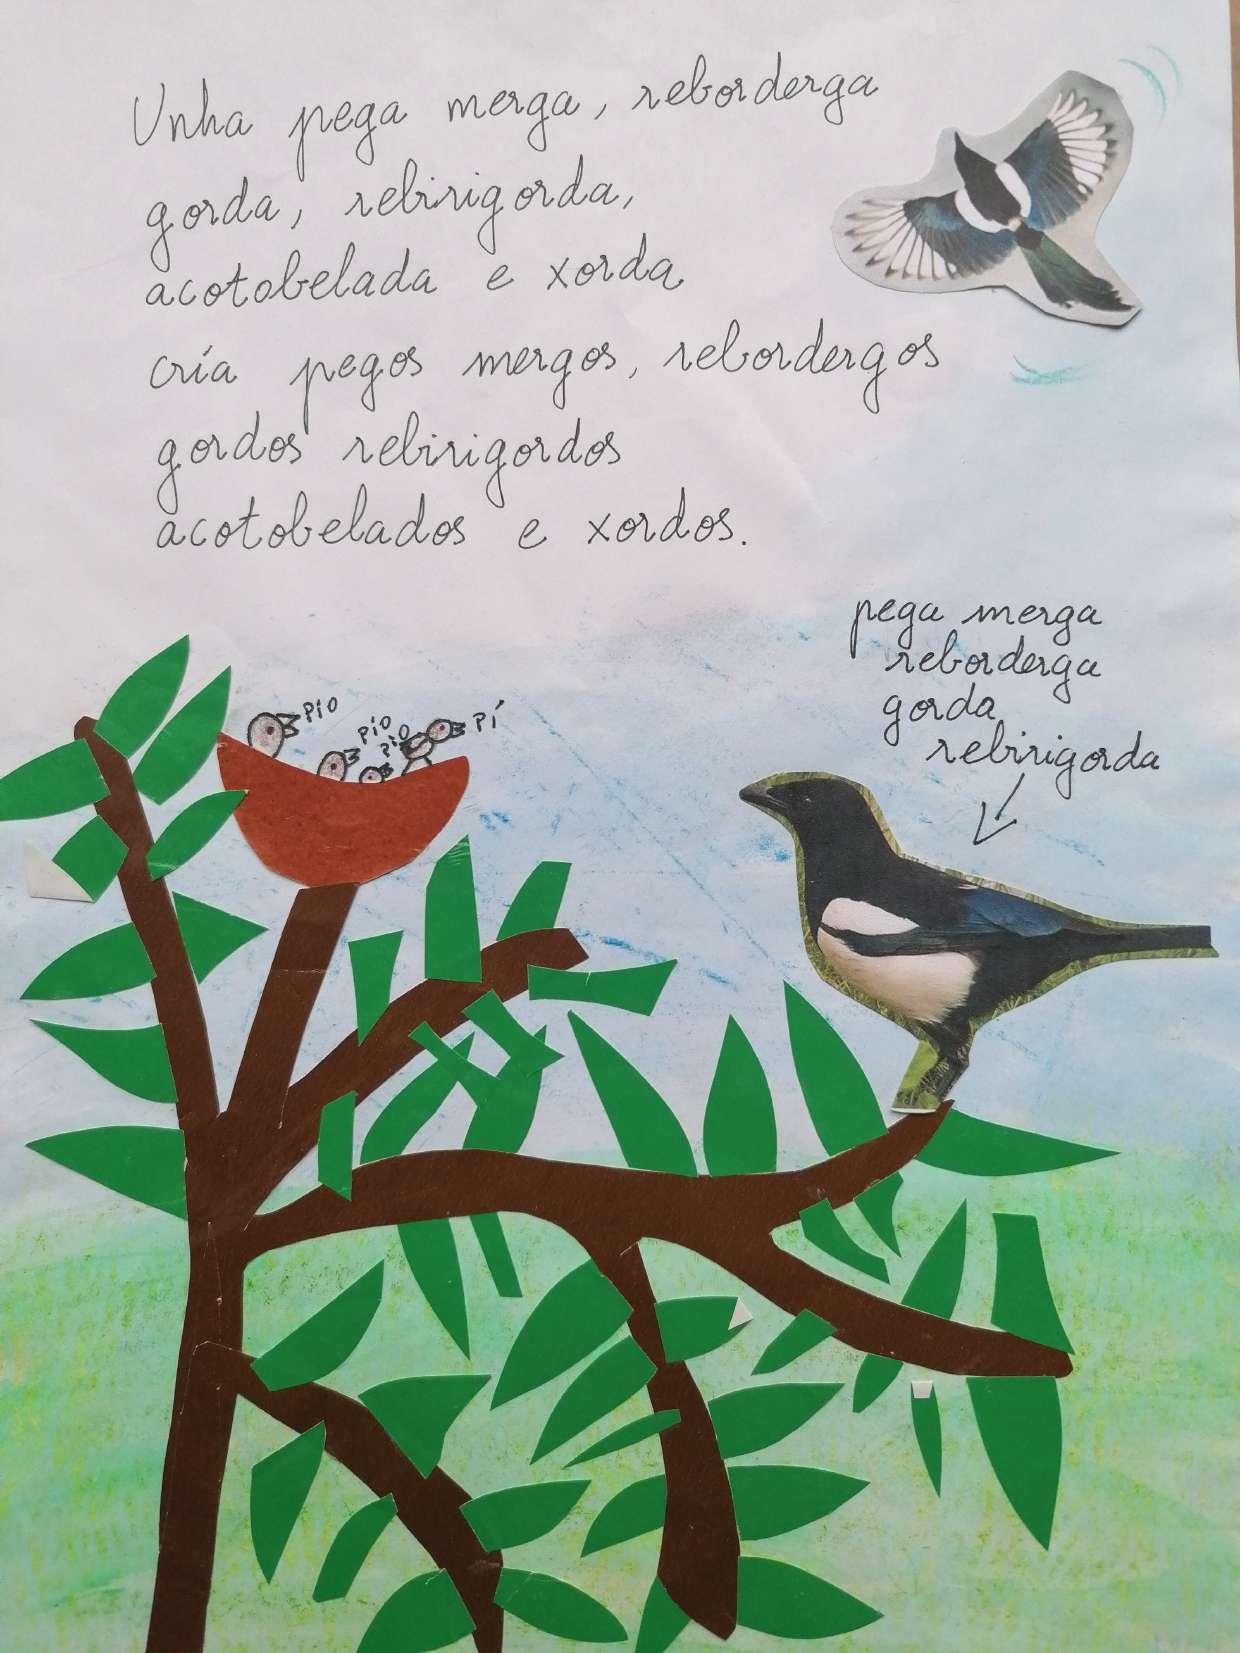 Unha pega merga, reborderga
gorda, rebirigorda,
acotobelada e xorda
cría pegos mergos, rebordergos
gordos rebirigordos
acotobelados e xordos.
pega merga
reborderga
gorda
rebirigorda
PÍO
PÍO
PÍO
PÍ